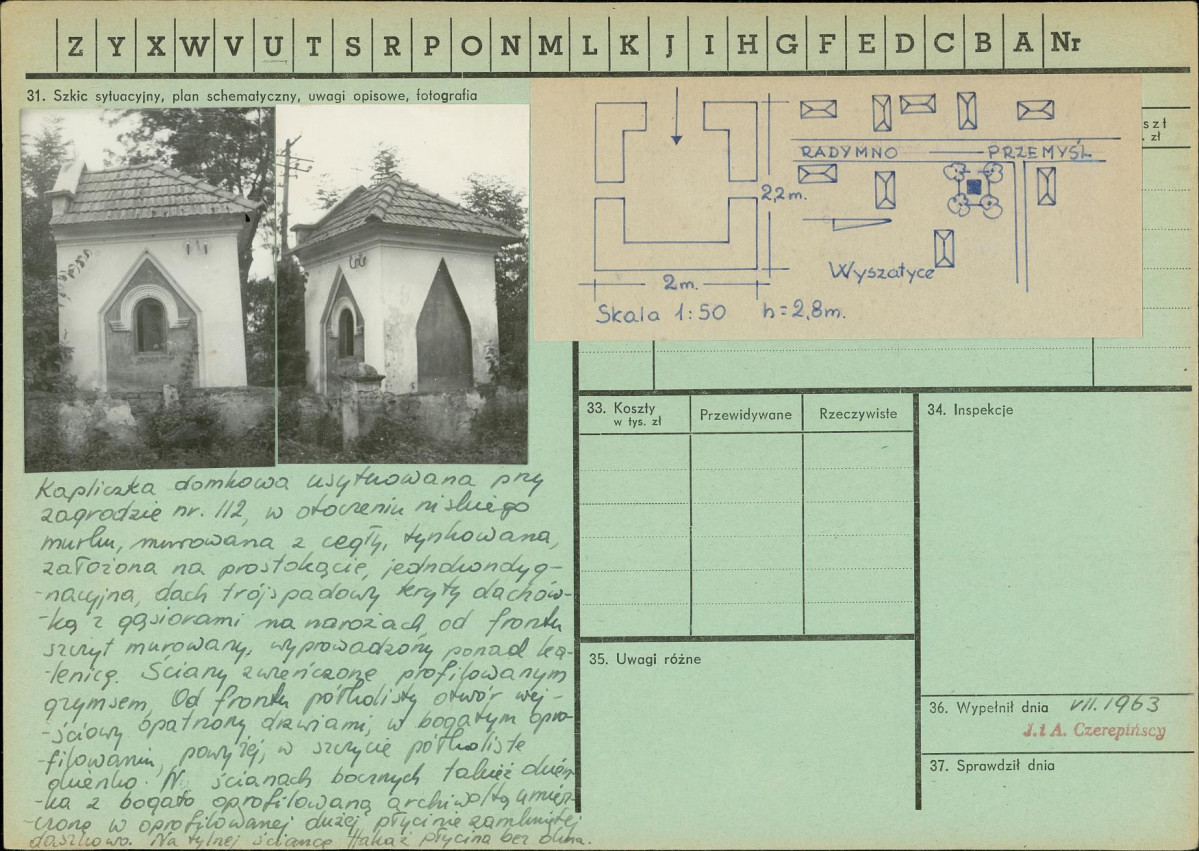 Z Y X W V U T S R P O N M L K J I H G F E D C B A Nr
31. Szkic sytuacyjny, plan schematyczny, uwagi opisowe, fotografia
szt
. zł
RADYMNO PRZEMYŚL
2,2m.
Wyszatyce
2m.
Skala 1:50 h=2,8m.
Kapliczka domkowa usytuowana przy
zagrodzie nr. 112, w otoczeniu niskiego
murku, murowana z cegły, tynkowana,
założona na prostokącie, jednokondyg-
-nacyjna, dach trójspadowy kryty dachów-
-ką z gąsiorami na narożach, od frontu
szczyt murowany, wyprowadzony ponad ka-
-lenicę. Ściany zwieńczone profilowanym
gzymsem. Od frontu półkolisty otwór wej-
-ściowy opatrzony drzwiami, w bogatym opro-
-filowaniu, powyżej, w szczycie półkoliste
okienko. Na ścianach bocznych takież okien-
-ka z bogato oprofilowaną archiwoltą umiesz-
-czone w oprofilowanej dużej płycinie zamkniętej
daszkowo. Na tylnej ściance taka ż płycina bez okna.
33. Koszty
w tys. zł
Przewidywane
Rzeczywiste
34. Inspekcje
35. Uwagi różne
36. Wypełnił dnia VII.1963
J. i A. Czerepińscy
37. Sprawdził dnia